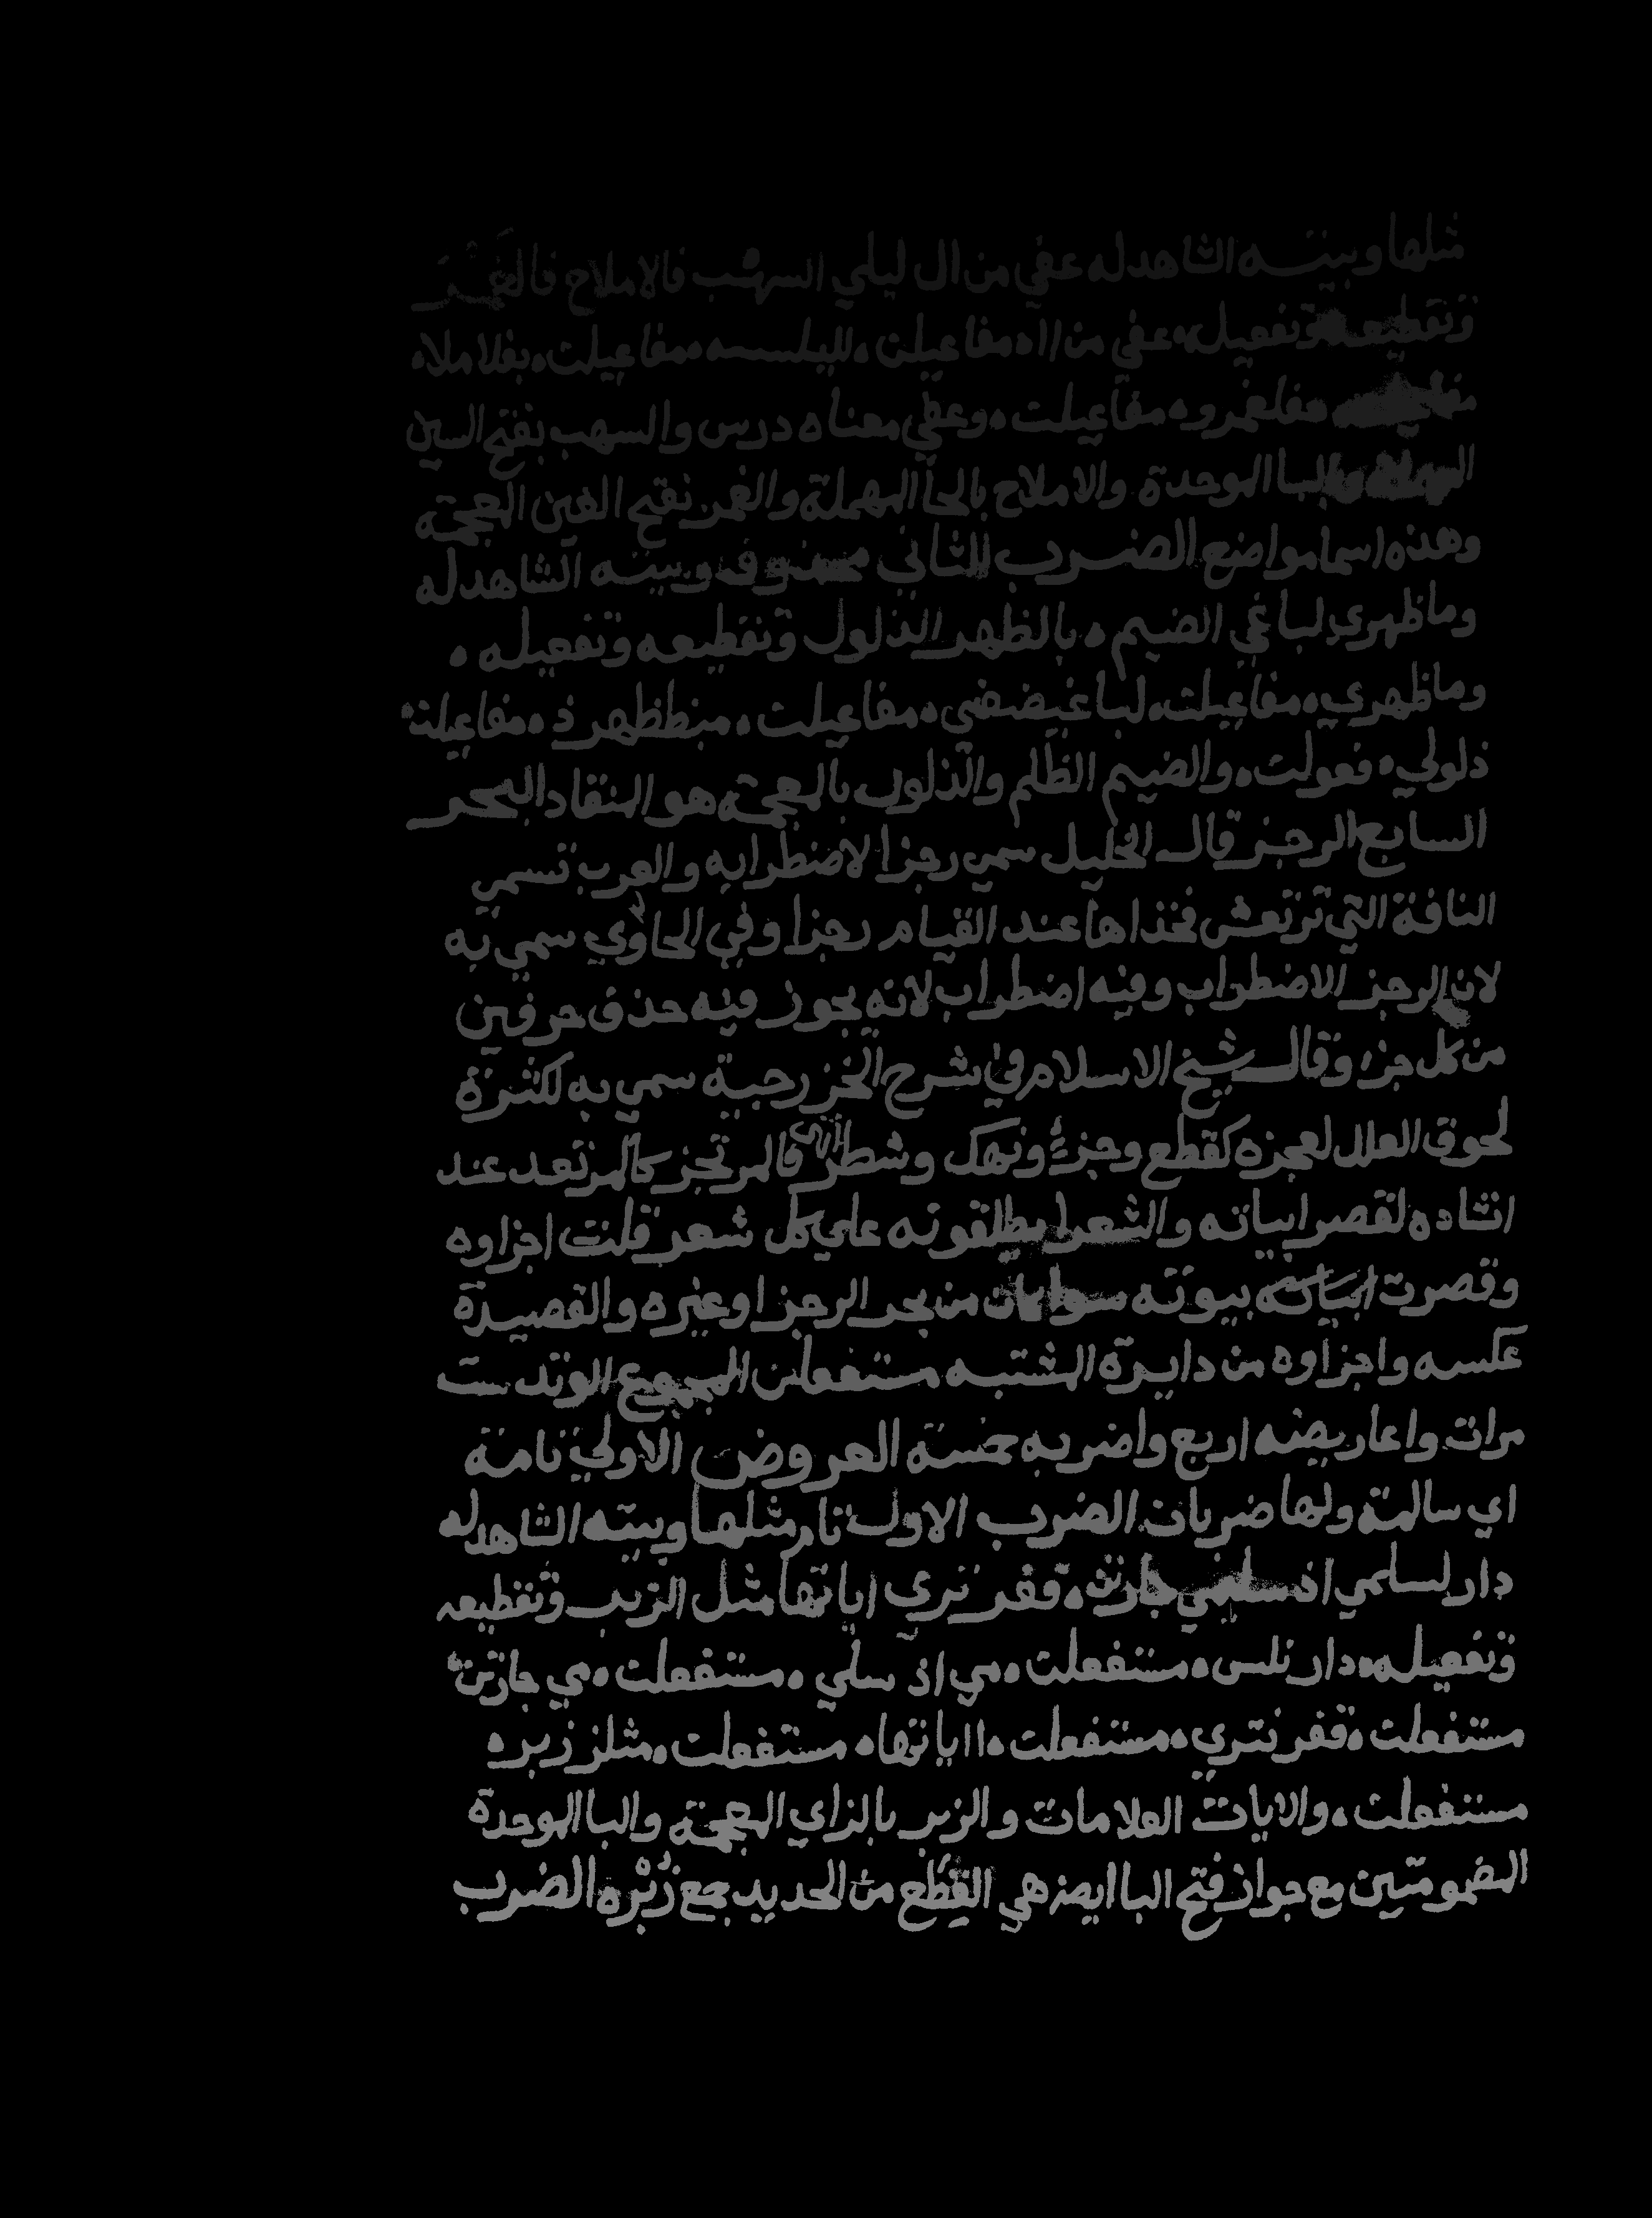 مثلها وبيته الشاهد له عفي من ال ليلي السهب فالاملاح فالغمر
وتقطيعه وتفعيله عفي من اا ه مفاعيلن ه لليلسسه ه مفاعيلن ه بفلاملا ه
مفاعيلن فلغمرو ه مفاعيلن ه وعفي معناه درس والسهب بفتح السين
المهملة وبالبا الموحدة والاملاح بالحا المهملة والغمر بفتح الغين المعجمة
وهذه اسما مواضع الضرب الثاني محذوف وبيته الشاهد له
وما ظهري لباغي الضيم ه بالظهر الذلول وتقطيعه وتفعيله ه
وماظهري ه مفاعيلن ه لباغيضضي ه مفاعيلن ه مبظظهر ذ ه مفاعيلن ه
ذلولي ه فعولن ه والضيم الظلم والذلول بالمعجمة هو المنقاد البحر
السابع الرجز قال الخليل سمي رجزا لاضطرابه والعرب تسمي
الناقة التي ترتعش فخذاها عند القيام رجزا وفي الحاوي سمي به
لان الرجز الاضطراب وفيه اضطراب لانه يجوز فيه حذف حرفين
من كل جزء وقال شيخ الاسلام في شرح الخزرجية سمي به لكثرة
لحوق العلل لعجزه كقطع وجزء ونهك وشطر فالمرتجز كالمرتعد عند
انشاده لقصر ابياته والشعرا يطلقونه علي كل شعر قلت اجزاوه
وقصرت ابياته بيوته سوا كان من بحر الرجز او غيره والقصيدة
عكسه واجزاوه من دايرة المشتبه مستفعلن المجموع الوتد ست
مرات واعاريضه اربع واضربه خمسة العروض الاولي تامة
اي سالمة ولها ضربان الضرب الاول تام مثلها وبيته الشاهد له
دار لسلمي اذ سليمي جارة ه قفر تري اياتها مثل الزبر وتقطيعه
وتفعيله ه دار لسل ه مستفعلن ه مي اذ سلي ه مستفعلن ه مي جارتن ه
مستفعلن ه قفر تتري ه مستفعلن ه اا ياتها ه مستفعلن ه مثلز زبر ه
مستفعلن ه والايات العلامات والزبر بالزاي المعجمة والبا الموحدة
المضمومتين مع جواز فتح البا ايضا هي القطع من الحديد جمع زبره الضرب